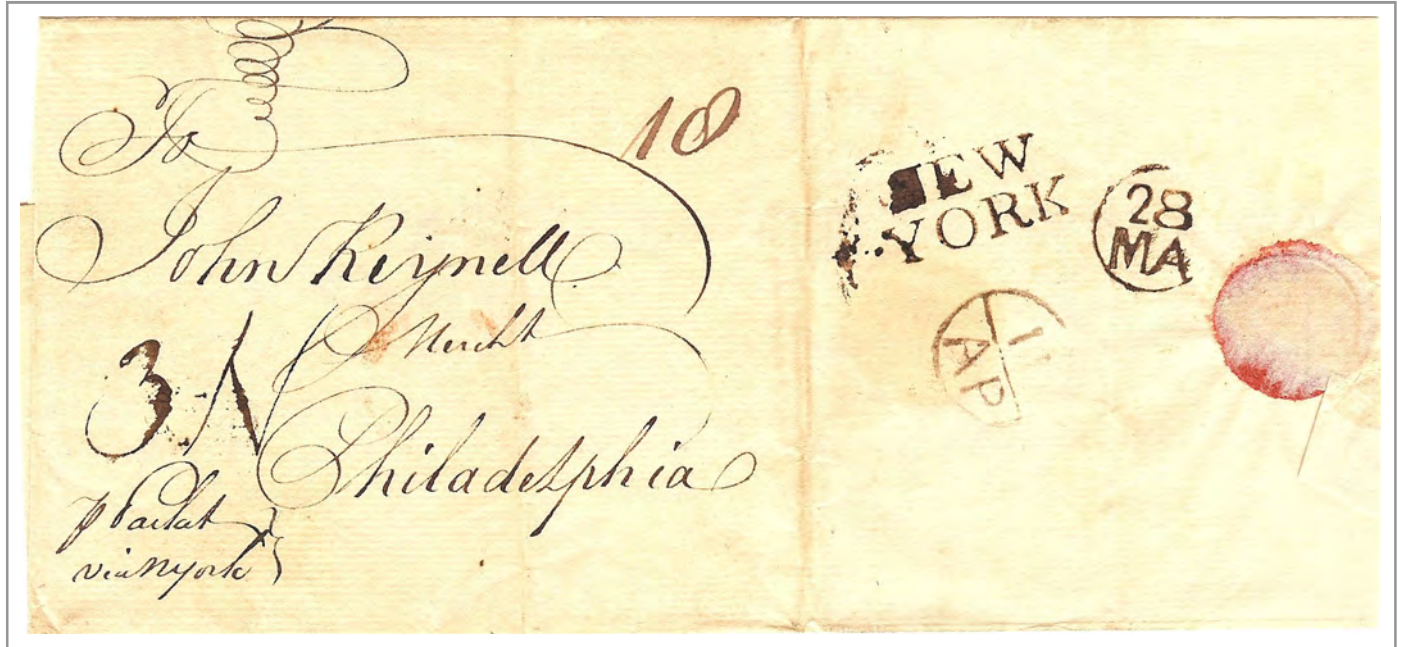 To
18
John Reynell
Mercht
3·N
Philadelphia
p Packet
via N york
NEW
YORK
28
MA
AP